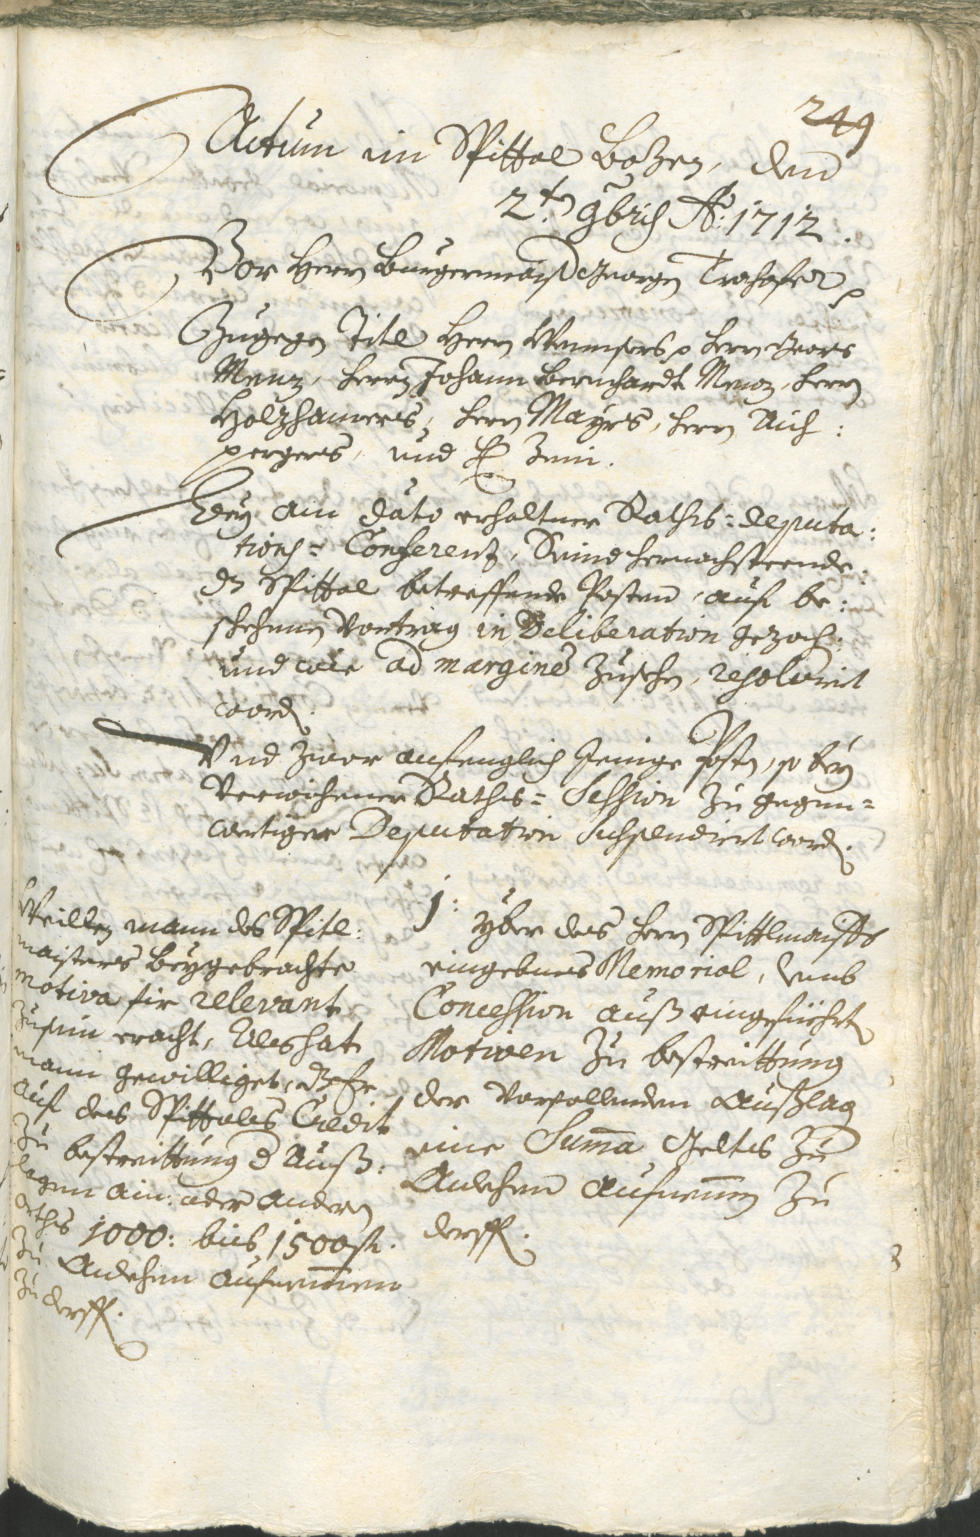 249
Actum im Spittal Bozen, den
2.ten 9bris Aº: 1712.
Vor Herrn Burgermaister Georgen Trohofer
Zugegen Titl Herrn Wenser, herrn Georg
Menz, herrn Johann Bernhardt Menz, herrn
Holzhamers, herrn Mayrs, herrn Aich:
pergers, und H: Zeni.
Bey ain dato erhaltner Raths=deputa:
tions=Conferenz, Seind hernachsteende
dz Spittal betreffende Posten, auf be:
schehnen Vortrag in Deliberation gezoch:
und wie ad marginem zusehen, resolviert
word.
Und zwar anfenglich jeinige Posten, so bey
verwichener Raths=Session zu gegen=
wertiger Deputation suspendiert word.
1: yber des herrn Spittlmaisters
eingebnes Memorial, umb
Concession auß eingefüehrten
Motiven zu bestreittung
der vorfallenden Außlag
eine Suma Geltes zu
Anlehen aufnemen zu
derffen.
Weillen mann des Spitl:
maisters beygebrachte
motiva für relevant
zusein eracht, Alls hat
mann gewilliget, dz Er
auf des Spittales Credit
zu bestreittung d Auß:
lagen ain: oder andern
orths 1000: bis 1500 fl.
zu Anlehen aufnemen
zu derffen.